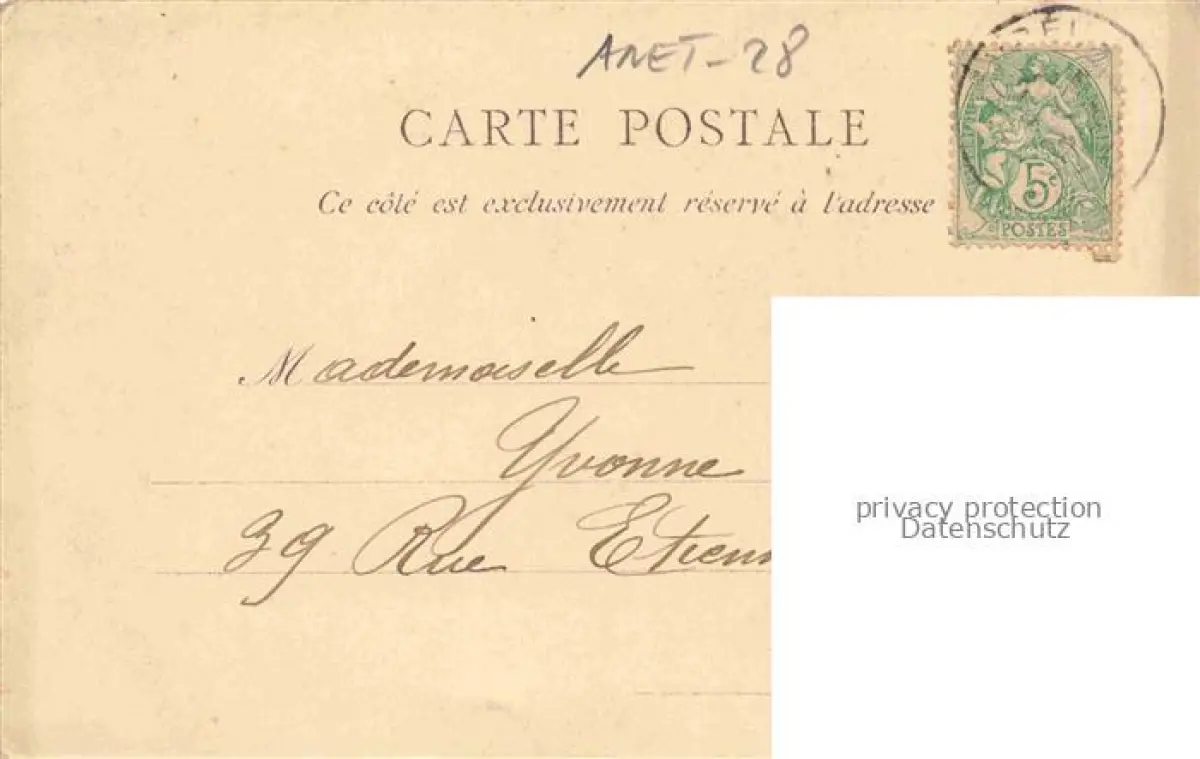 ANET - 28
CARTE POSTALE
Ce côté est exclusivement réservé à l'adresse
5c
POSTES
Mademoiselle
Yvonne
39 Rue Etienn
privacy protection
Datenschutz